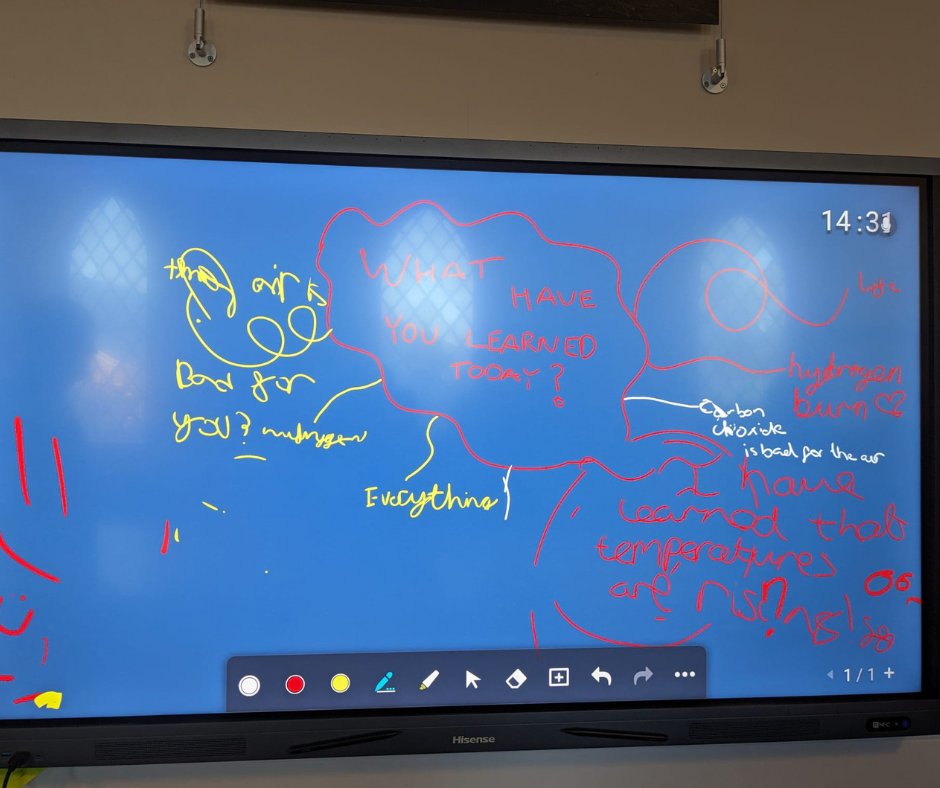 14:31
WHAT
HAVE
YOU LEARNED
TODAY?
air
Bad for
you?
Everything
hydrogen
burn
Carbon
dioxide
is bad for the air
I have
learned that
temperatures
are rising!
1/1
Hisense